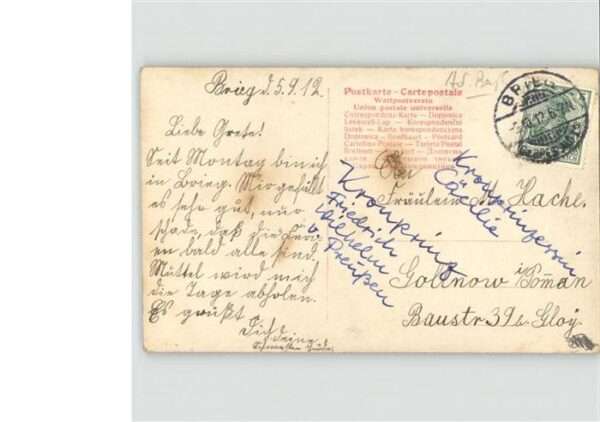 Brieg d. 5.9.12.
Liebe Grete!
Seit Montag bin ich
in Brieg. Mir gefällt
es sehr gut, nur
schade, daß die Feri-
en bald alle sind.
Muttel wird mich
die Tage abholen.
Es grüßt
Dich
deine
Postkarte - Cartepostale
Weltpostverein
Union postale universelle
Correspondenz-Karte — Dopisnica
Levelező-Lap — Korespondenční
lístek — Karta korespondencyjna
Dopisnica — Briefkaart — Postcard
Cartolina Postale — Tarjeta Postal
BRIEG
An
Fräulein M. Hache.
Gollnow i/Pomm
Baustr 39 b. Gloy.
Kronprinzessin
Cäcilie
Kronprinz
Friedrich
Wilhelm
v.
Preußen